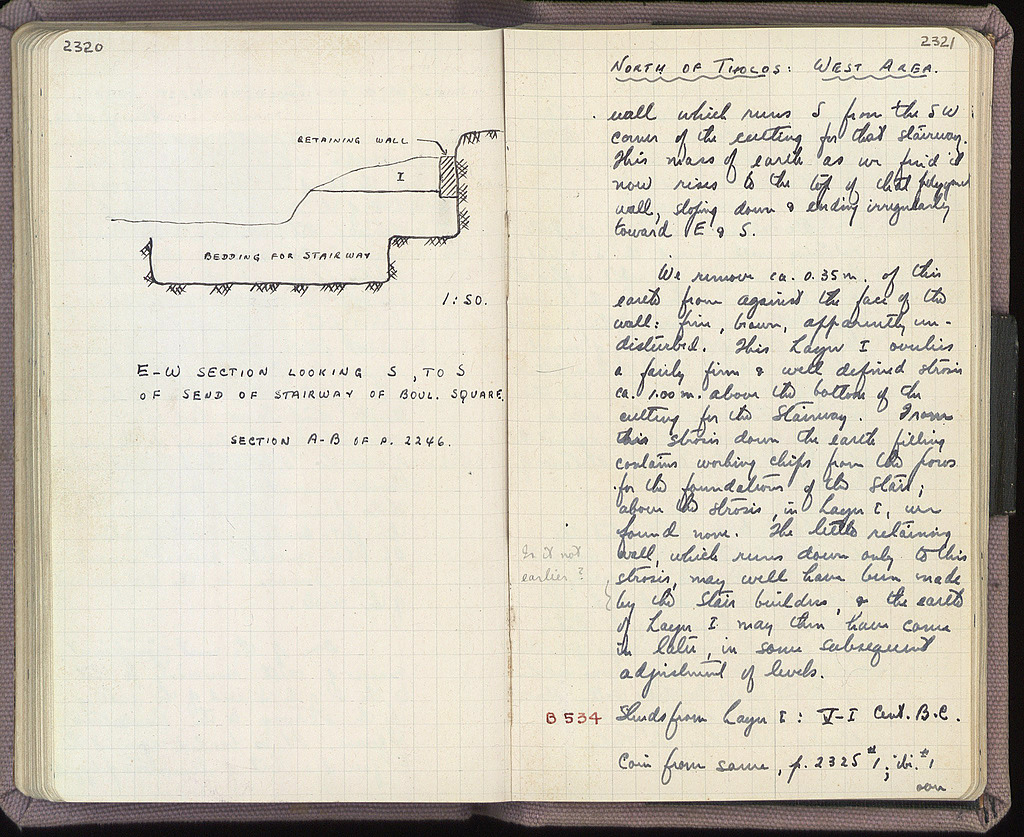 2320
RETAINING WALL
I
BEDDING FOR STAIRWAY
1:50.
E-W SECTION LOOKING S, TO S
OF S END OF STAIRWAY OF BOUL. SQUARE.
SECTION A-B OF P. 2246.
2321
NORTH OF THOLOS: WEST AREA.
wall which runs S from the SW
corner of the cutting for that stairway.
This mass of earth as we find it
now rises to the top of that polygonal
wall, sloping down & ending irregularly
toward E & S.
We remove ca. 0.35 m. of this
earth from against the face of the
wall: firm, brown, apparently un-
disturbed. This Layer I overlies
a fairly firm & well defined strosis
ca. 1.00 m. above the bottom of the
cutting for the stairway. From
this strosis down the earth filling
contains working chips from the poros
for the foundations of the stair;
above the strosis, in Layer I, we
found none. The little retaining
wall, which runs down only to this
strosis, may well have been made
by the stair builders, & the earth
of Layer I may then have come
in later, in some subsequent
adjustment of levels.
Is it not
earlier?
B 534 Sherds from Layer I: V-I Cent. B.C.
Coin from same, p. 2325 #1; ibi. #1